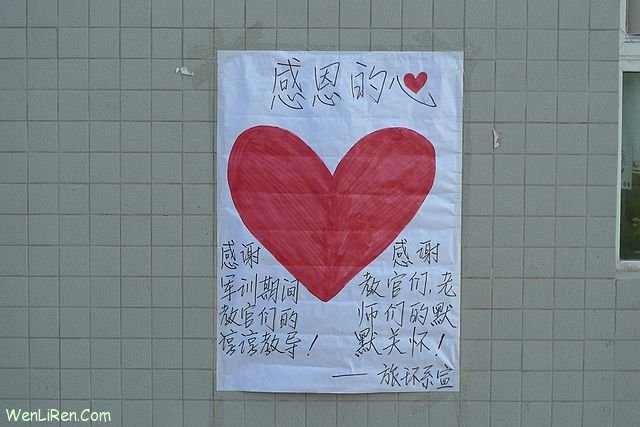 感恩的心
感谢
军训期间
教官们的
谆谆教导！
感谢
教官们、老
师们的默
默关怀！
—— 旅环系宣
WenLiRen.Com